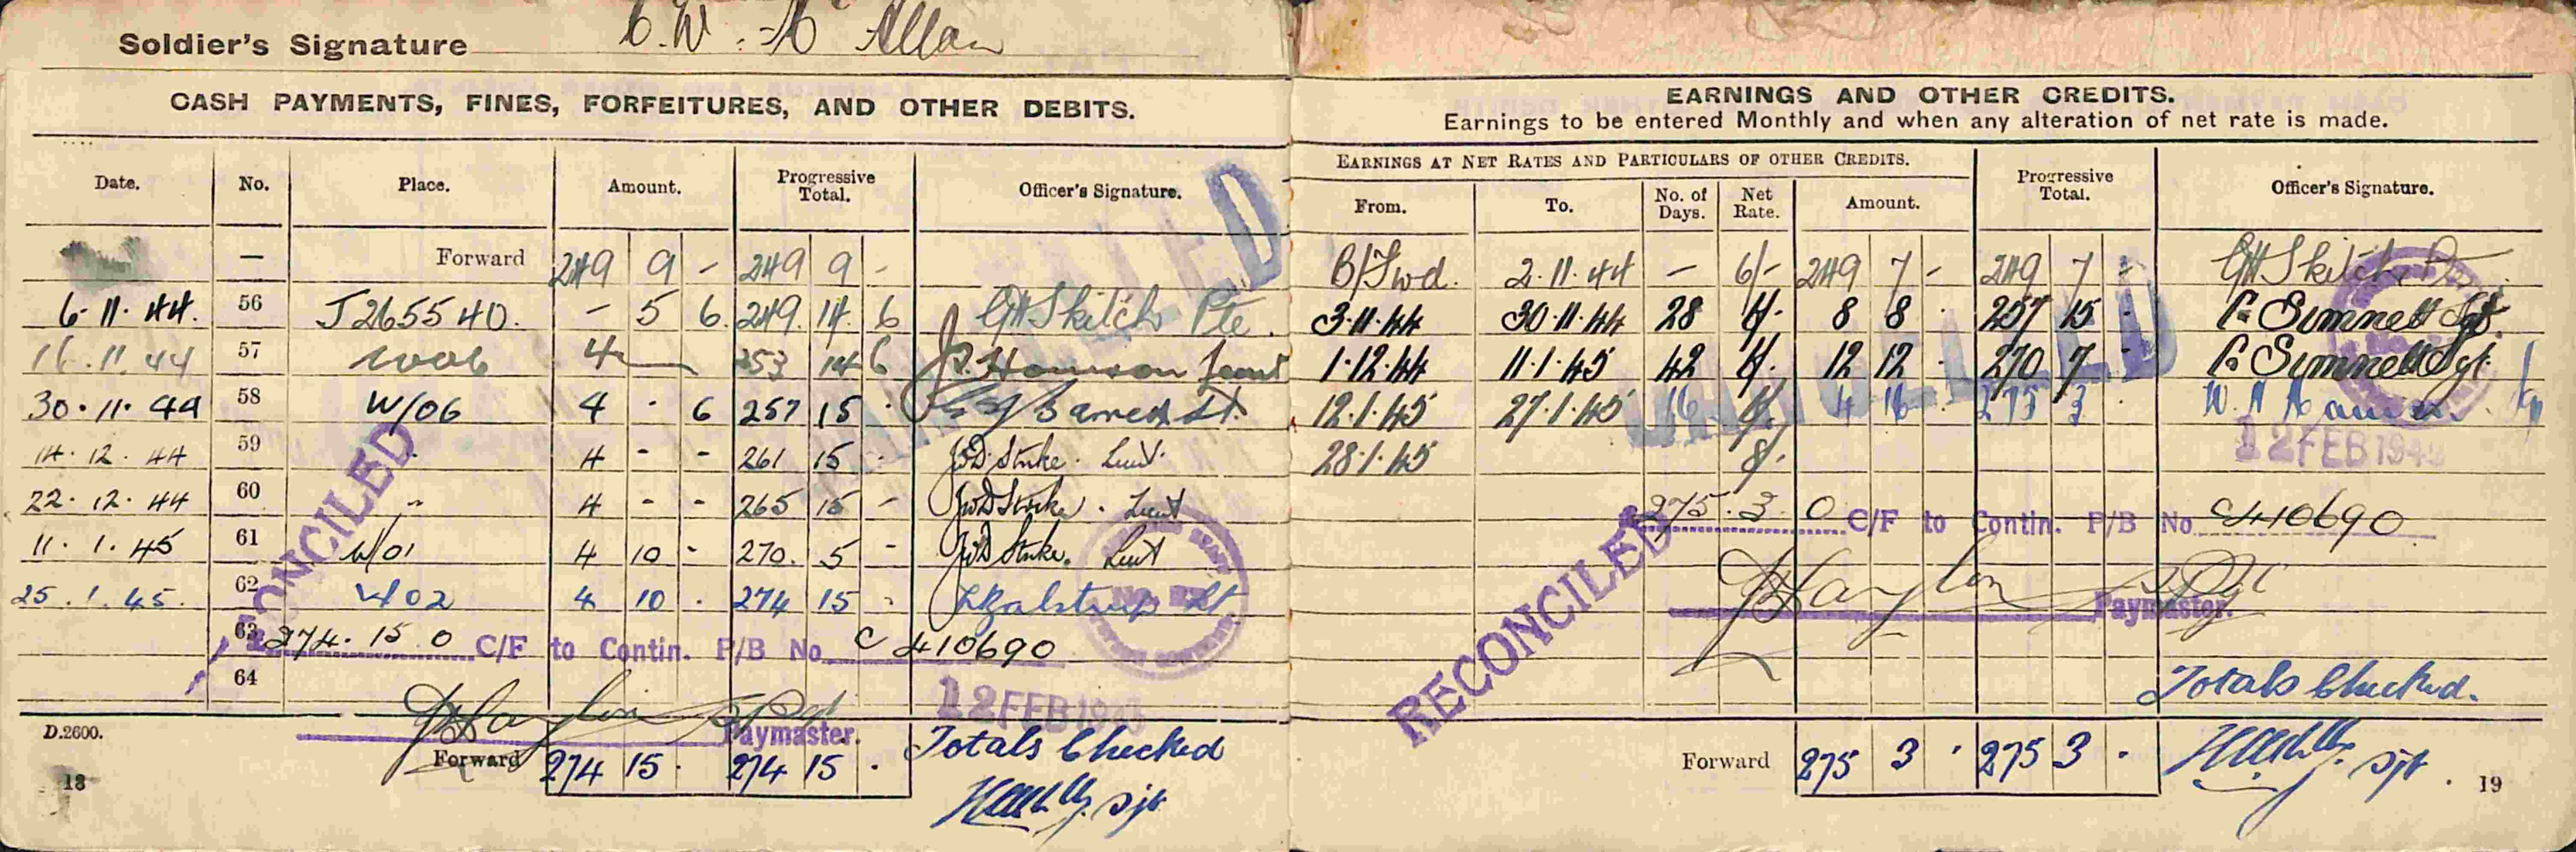 Soldier's Signature C.W. Mc Allan
CASH PAYMENTS, FINES, FORFEITURES, AND OTHER DEBITS.
Date. No. Place. Amount. Progressive Total. Officer's Signature.
— Forward 249 9 - 249 9 -
6.11.44. 56 J265540. - 5 6. 249. 14. 6 GH Skitch Pte.
16.11.44 57 W006 4 — 253 14 6
30.11.44 58 W/06 4 . 6 257 15 .
14.12.44 59 " 4 - - 261 15 . Lieut.
22.12.44 60 " 4 - - 265 15 - Lieut
11.1.45 61 W/01 4 10 - 270. 5 - Lieut
25.1.45. 62 W02 4 10 . 274 15 - Lt.
63 274. 15. 0 C/F to Contin. P/B No. C 410690
64
RECONCILED
CANCELLED
12 FEB 1945
Paymaster.
D.2600.
Forward 274 15 . 274 15 . Totals Checked
Sjt
18
EARNINGS AND OTHER CREDITS.
Earnings to be entered Monthly and when any alteration of net rate is made.
EARNINGS AT NET RATES AND PARTICULARS OF OTHER CREDITS.
From. To. No. of Days. Net Rate. Amount. Progressive Total. Officer's Signature.
B/Fwd. 2.11.44 — 6/- 249 7 - 249 7 - GH Skitch Pte
3.11.44 30.11.44 28 6/. 8 8 . 257 15 - Sumnell Sgt.
1.12.44 11.1.45 42 6/. 12 12 . 270 7 - Sumnell Sgt.
12.1.45 27.1.45 16 6/. 4 16 . 275 3 .
28.1.45 8/.
CANCELLED
12 FEB 1945
275. 3. 0 C/F to Contin. P/B No. C410690
Paymaster.
RECONCILED
Totals Checked.
Forward 275 3 . 275 3 . Sjt.
19